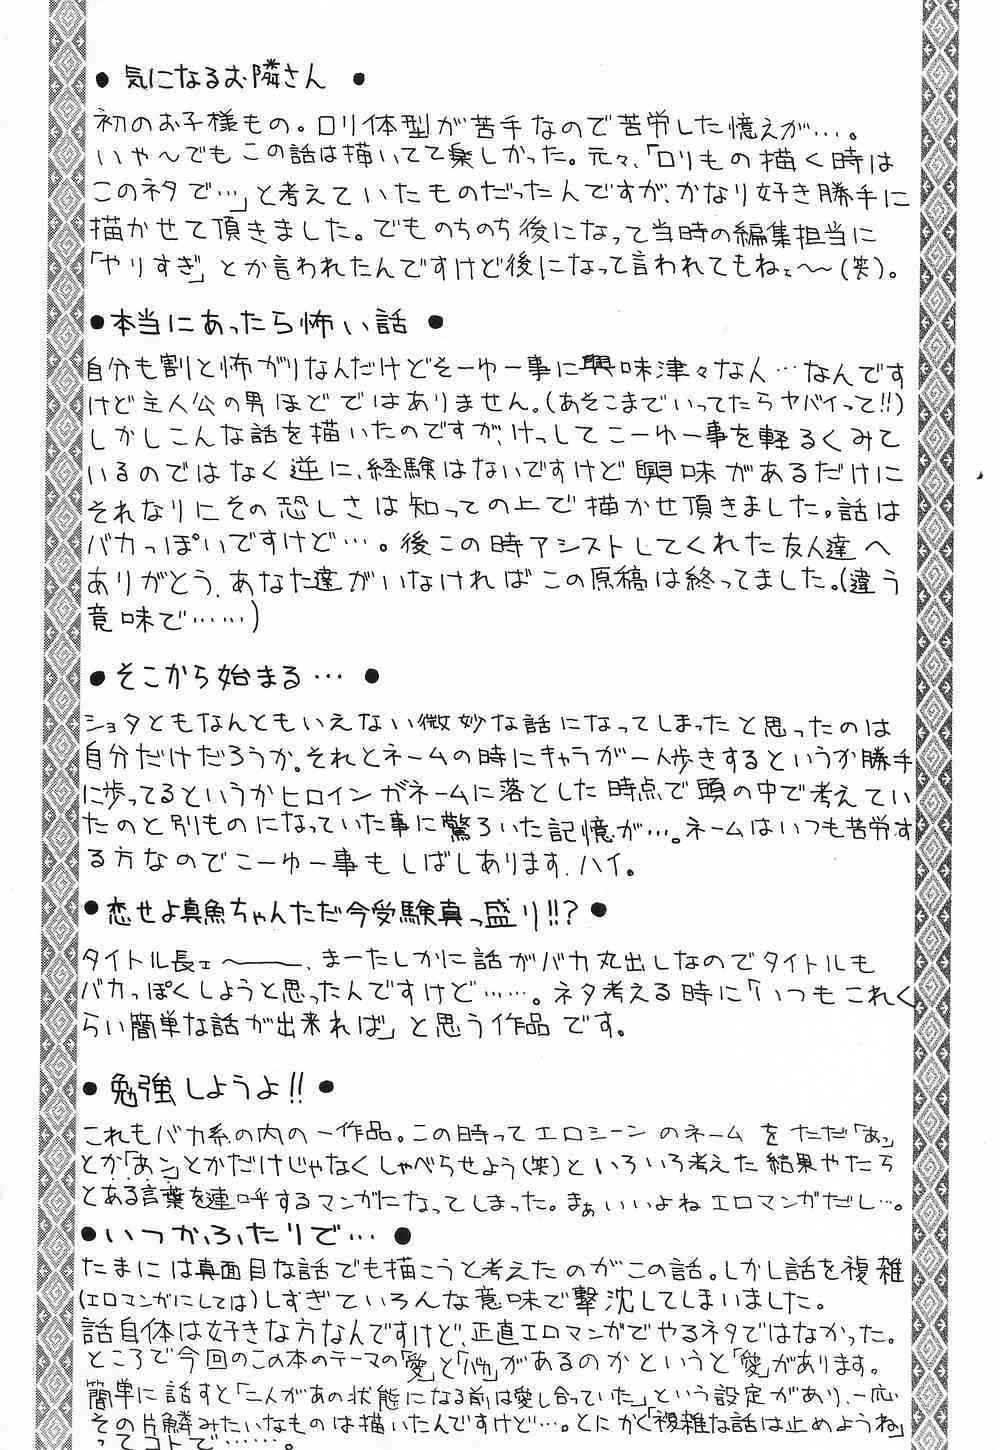 ● 気になるお隣さん ●
初のお子様もの。ロリ体型が苦手なので苦労した憶えが…。
いや〜でもこの話は描いてて楽しかった。元々、「ロリもの描く時は
このネタで…」と考えていたものだったんですが、かなり好き勝手に
描かせて頂きました。でものちのち後になって当時の編集担当に
「やりすぎ」とか言われたんですけど後になって言われてもねェ〜〜(笑)。
● 本当にあったら怖い話 ●
自分も割と怖がりなんだけどそーゆー事に興味津々な人…なんです
けど主人公の男ほどではありません。(あそこまでいってたらヤバイって!!)
しかしこんな話を描いたのですが、けっしてこーゆー事を軽るくみて
いるのではなく逆に、経験はないですけど興味があるだけに
それなりにその恐しさは知っての上で描かせ頂きました。話は
バカっぽいですけど…。後この時アシストしてくれた友人達へ
ありがとう、あなた達がいなければこの原稿は終ってました。(違う
意味で……)
● そこから始まる… ●
ショタともなんともいえない微妙な話になってしまったと思ったのは
自分だけだろうか。それとネームの時にキャラが一人歩きするというか勝手
に歩ってるというかヒロインがネームに落とした時点で頭の中で考えてい
たのと別ものになっていた事に驚ろいた記憶が…。ネームはいつも苦労す
る方なのでこーゆー事もしばしあります、ハイ。
● 恋せよ真魚ちゃんただ今受験真っ盛り!!? ●
タイトル長ェ〜――、まーたしかに話がバカ丸出しなのでタイトルも
バカっぽくしようと思ったんですけど……。ネタ考える時に「いつもこれく
らい簡単な話が出来れば」と思う作品です。
● 勉強しようよ!! ●
これもバカ系の内の一作品。この時ってエロシーンのネームをただ「あっ」
とか「あン」とかだけじゃなくしゃべらせよう(笑)といろいろ考えた結果やたら
とある言葉を連呼するマンガになってしまった。まぁいいよねエロマンガだし…。
● いつかふたりで… ●
たまには真面目な話でも描こうと考えたのがこの話。しかし話を複雑
(エロマンガにしては)しすぎていろんな意味で撃沈してしまいました。
話自体は好きな方なんですけど、正直エロマンガでやるネタではなかった。
ところで今回のこの本のテーマの「愛」と「バカ」があるのかというと「愛」があります。
簡単に話すと「二人があの状態になる前は愛し合っていた」という設定があり、一応
その片鱗みたいなものは描いたんですけど…。とにかく「複雑な話は止めようね」
ってコトで……。